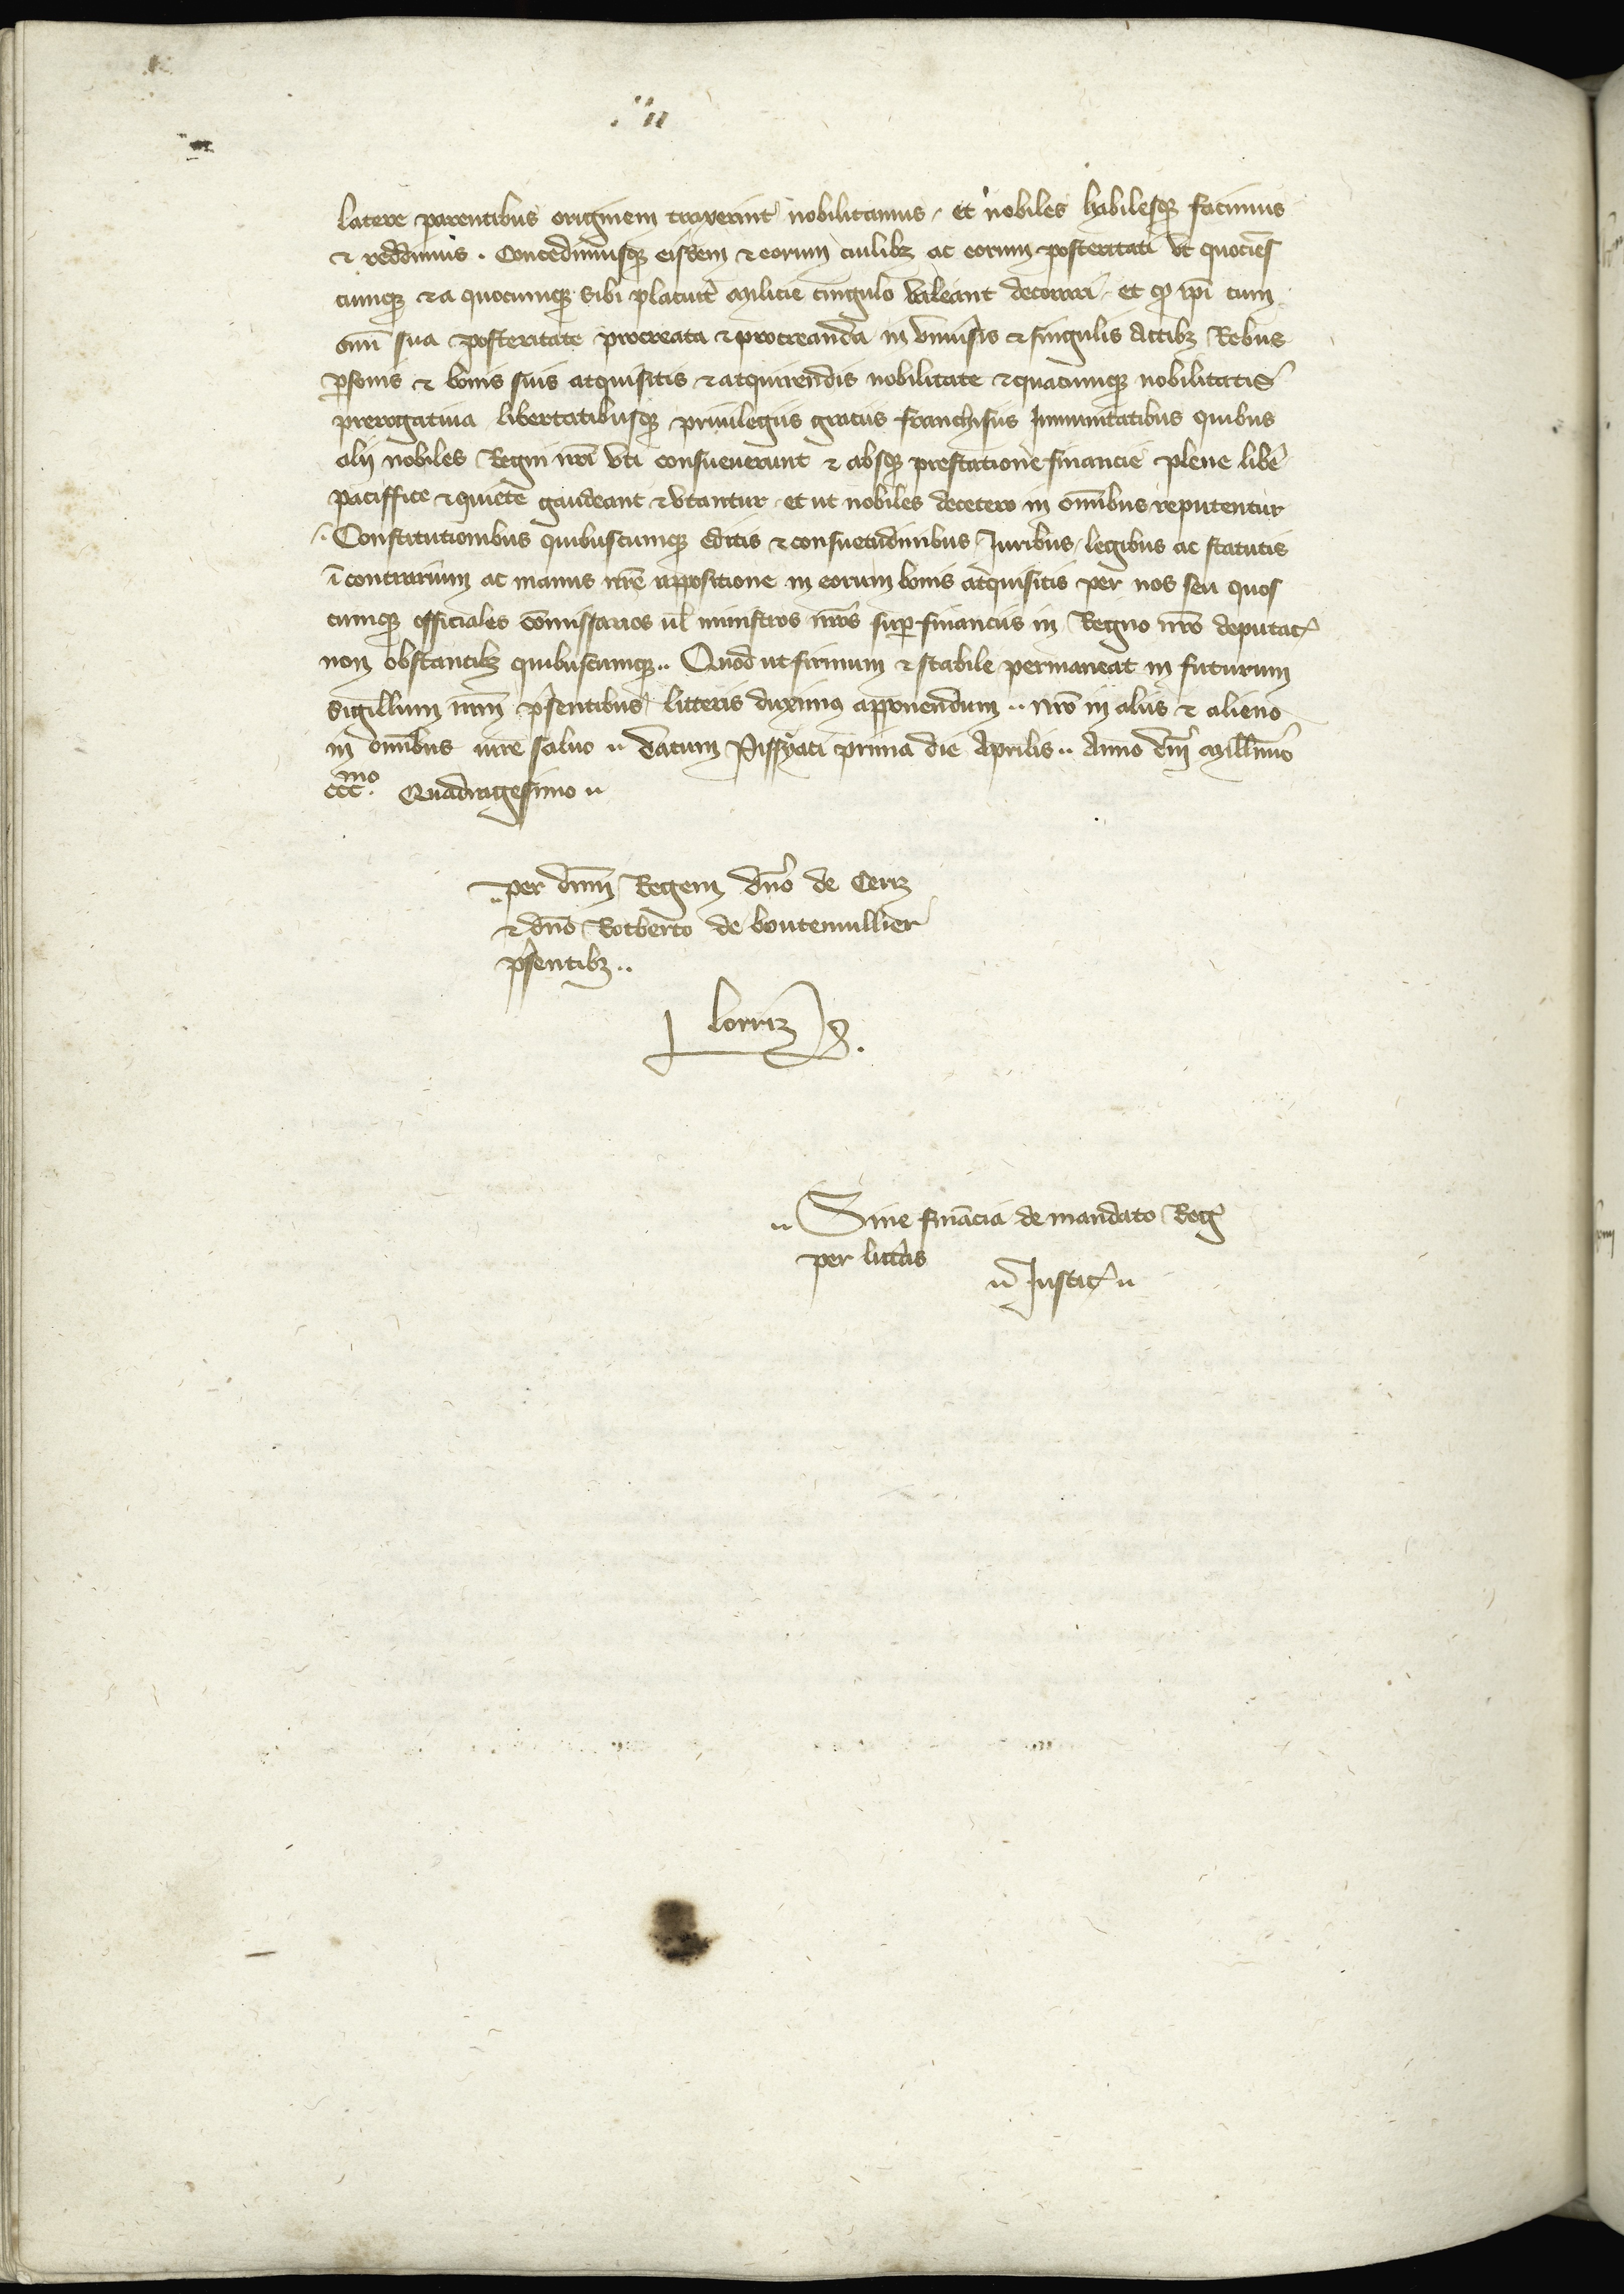 latere parentibus originem traxerint nobilitamus / et nobiles habilesq3 facimus
⁊ reddimus . Concedimusq3 eisdem ⁊ eorum cuilib3 ac eorum posteritati Vt quociēs
cumq3 ⁊ a quocumq3 sibi placuit̉ Milicie cingulo Valeant decorari / et qͥ ip̄i cum
om̄i sua posteritate procreata ⁊ procreanda in Vniuͥsis ⁊ singulis Actib3 Rebus
ꝑsonis ⁊ bonis suis atquisitis ⁊ atquirendis nobilitate ⁊ quacumq3 nobilitatis
prerogatiua libertatibusq3 priuilegiis graciis franchisiis Immunitatibus quibus
alij nobiles Regni nr̄i Vti consueuerunt ⁊ absq3 prestatione financie plene libē
paciffice ⁊ quiete gaudeant ⁊ Vtantur / et ut nobiles decetero in om̄ibus reputentur
/. Constitutionibus quibuscumq3 editis ⁊ consuetudinibus / Iuribus / legibus ac statutis
ī contrarium ac manus nr̄e appositione in eorum bonis atquisitis per nos seu quos
cumq3 officiales com̄issarios ul̄ ministros nr̄os suꝑ financiis in Regno nr̄o deputat̉
non obstantib3 quibuscumq3 .. Quod ut firmum ⁊ stabile permaneat in futurum
sigillum nr̄m p̄sentibus litteris duximꝰ apponendum .. nr̄o in aliis ⁊ alieno
in om̄ibus iure saluo .. Datum Pissyaci prima die Aprilis .. Anno dn̄i Mill̄imo
ccc.mo Quadragesimo ..
.. per dn̄m Regem dn̄o de Ceriz
⁊ dn̄o Rotberto de boutemullier
p̄sentib3 ..
lorriz
.. Sine finācia de mandato Reg̉
per litt̄as
.. Justic̉ ..